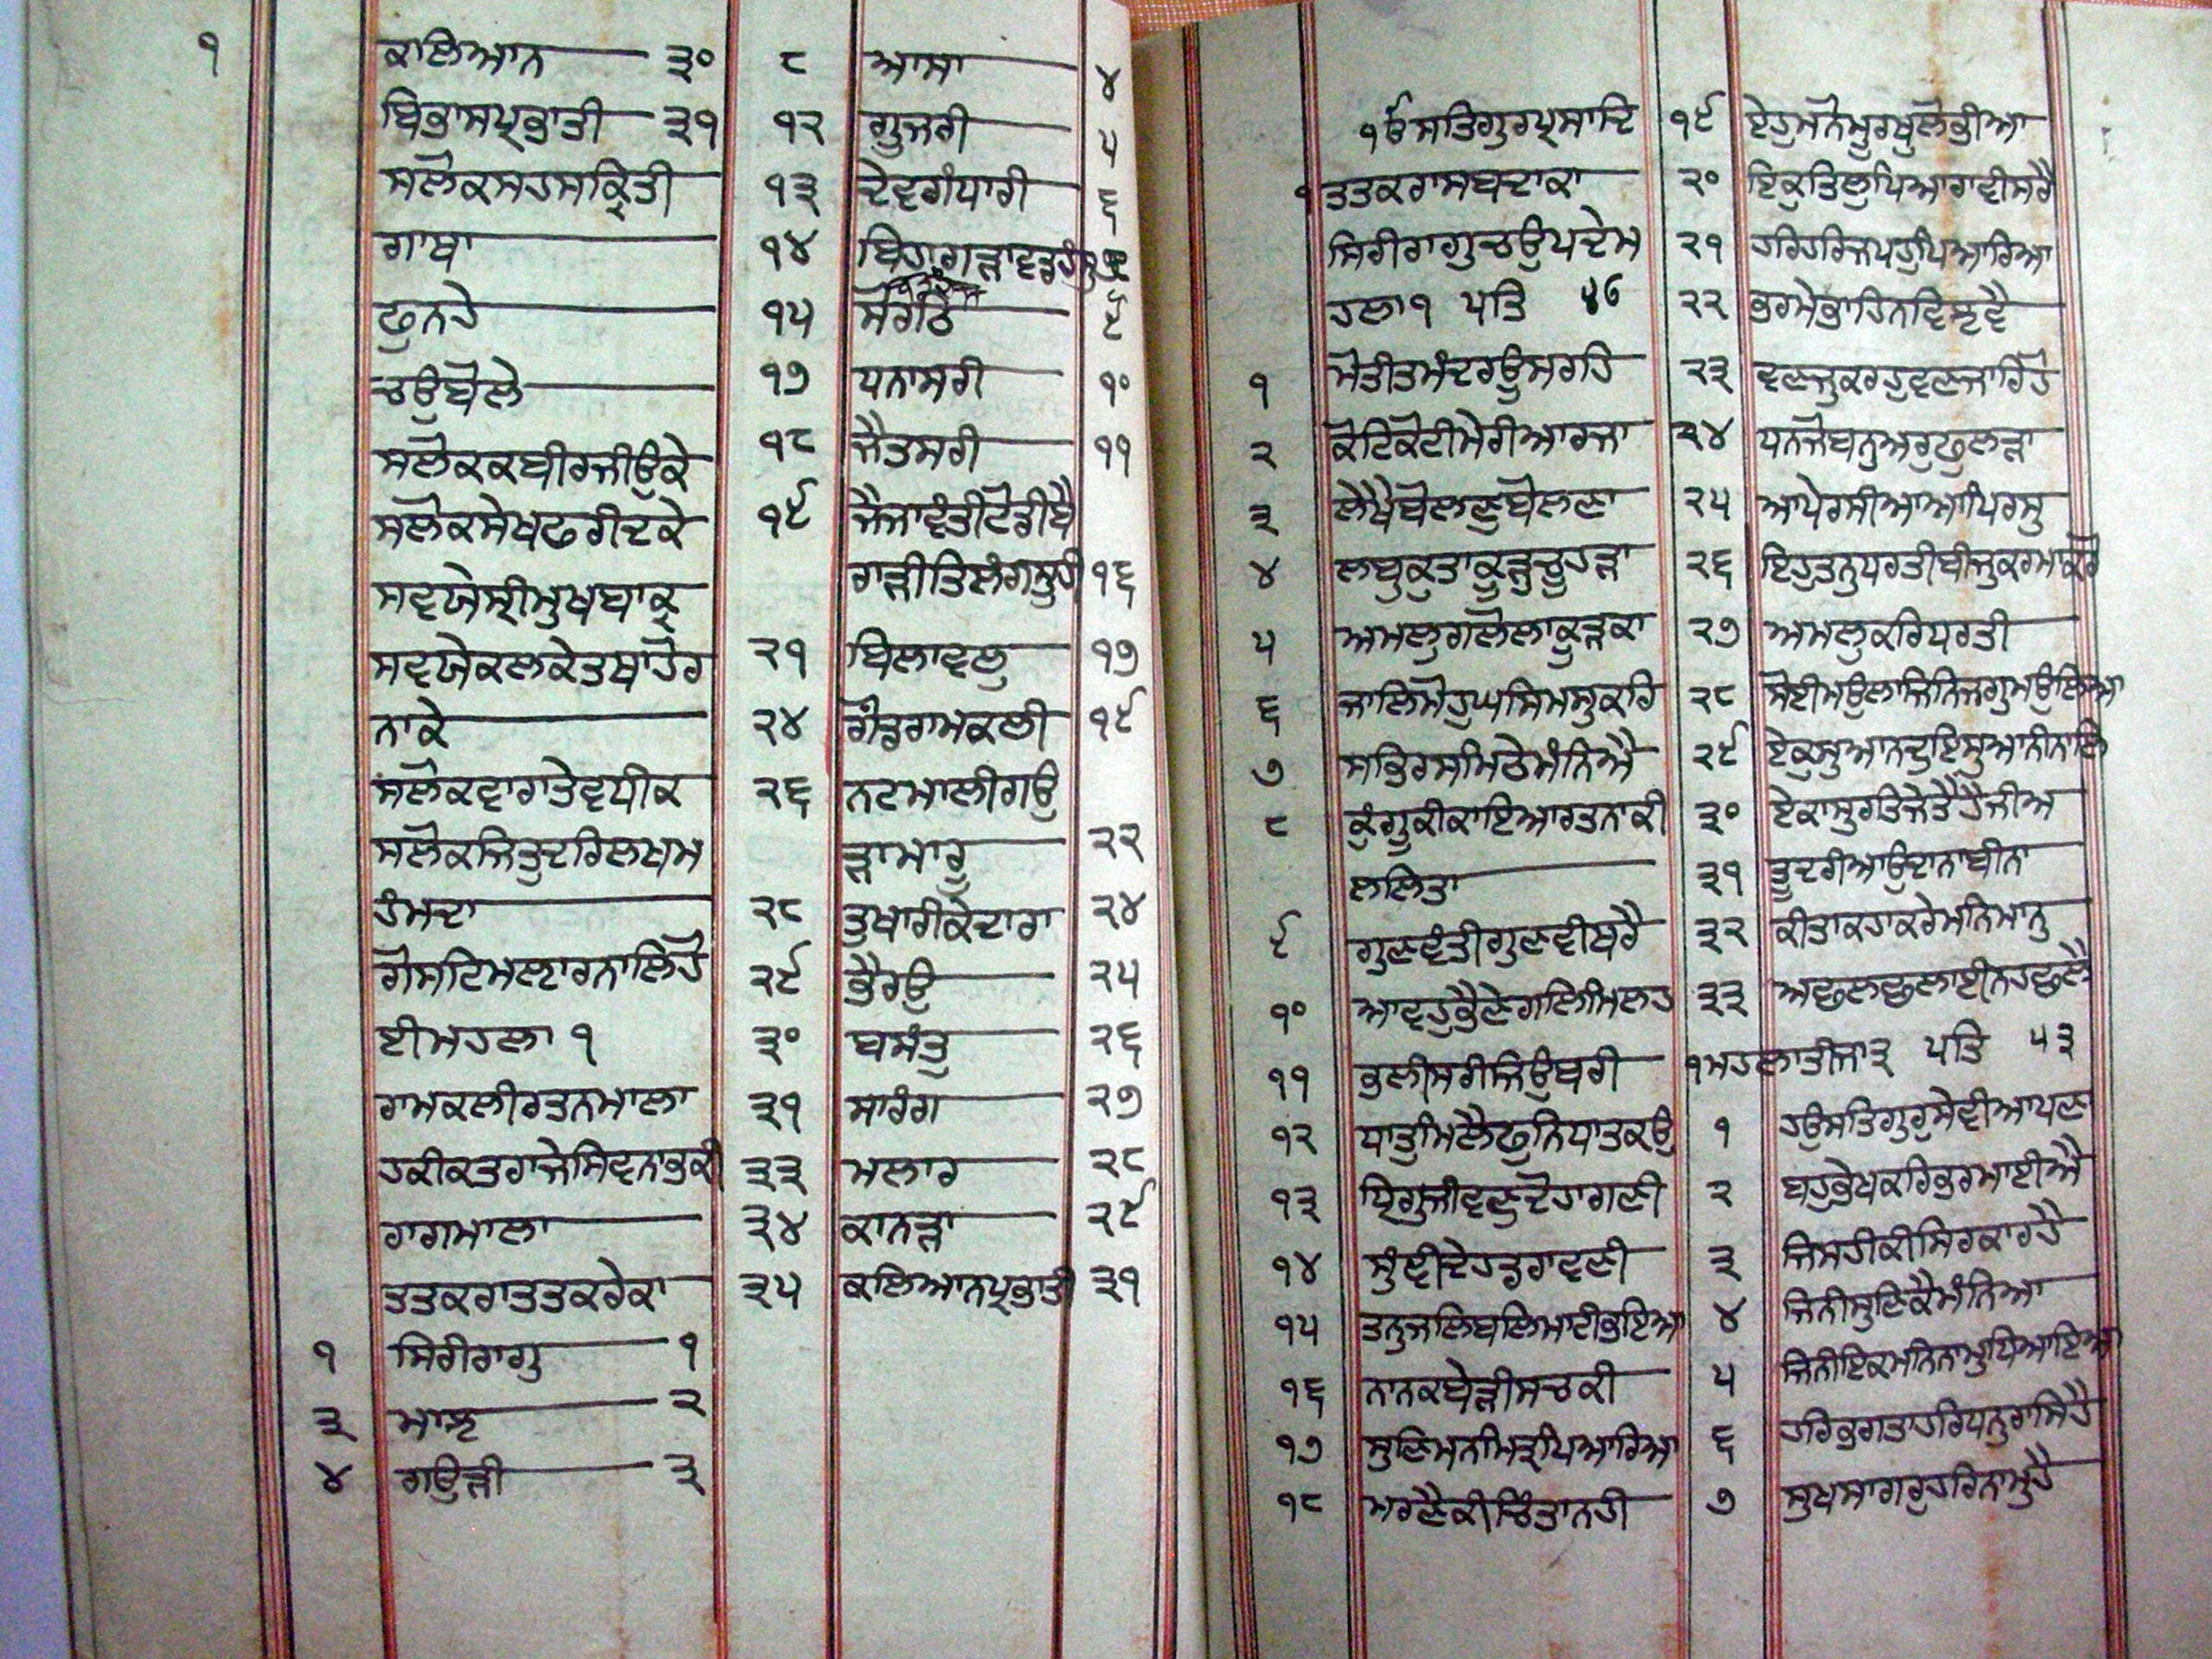 ੧
ਕਲਿਆਨ ੩੦
ਬਿਭਾਸਪ੍ਰਭਾਤੀ ੩੧
ਸਲੋਕਸਹਸਕ੍ਰਿਤੀ
ਗਾਥਾ
ਫੁਨਹੇ
ਚਉਬੋਲੇ
ਸਲੋਕਕਬੀਰਜੀਉਕੇ
ਸਲੋਕਸੇਖਫਰੀਦਕੇ
ਸਵਯੇਸ੍ਰੀਮੁਖਬਾਕ੍ਯ
ਸਵਯੇਕਲਕੇਤਥਾਹੋਰ
ਨਾਕੇ
ਸਲੋਕਵਾਰਾਤੇਵਧੀਕ
ਸਲੋਕਜਿਤੁਦਰਿਲਖਮ
ਹੰਮਦਾ
ਗੋਸਟਿਮਲਾਰਨਾਲਿਹੋ
ਈਮਹਲਾ ੧
ਰਾਮਕਲੀਰਤਨਮਾਲਾ
ਹਕੀਕਤਰਾਜੇਸਿਵਨਾਭਕੀ
ਰਾਗਮਾਲਾ
ਤਤਕਰਾਤਤਕਰੇਕਾ
੧ ਸਿਰੀਰਾਗੁ ੧
੩ ਮਾਝ ੨
੪ ਗਉੜੀ ੩
੮ ਆਸਾ ੪
੧੨ ਗੂਜਰੀ ੫
੧੩ ਦੇਵਗੰਧਾਰੀ ੬
੧੪ ਬਿਹਾਗੜਾਵਡਹੰਸੁ
੧੫ ਸੋਰਠਿ ੯
੧੭ ਧਨਾਸਰੀ ੧੦
੧੮ ਜੈਤਸਰੀ ੧੧
੧੯ ਜੈਜਾਵੰਤੀਟੋਡੀਬੈ
ਰਾੜੀਤਿਲੰਗਸੂਹੀ ੧੬
੨੧ ਬਿਲਾਵਲੁ ੧੭
੨੪ ਗੋਂਡਰਾਮਕਲੀ ੧੯
੨੬ ਨਟਮਾਲੀਗਉ
ੜਾਮਾਰੂ ੨੨
੨੮ ਤੁਖਾਰੀਕੇਦਾਰਾ ੨੪
੨੯ ਭੈਰਉ ੨੫
੩੦ ਬਸੰਤੁ ੨੬
੩੧ ਸਾਰੰਗ ੨੭
੩੩ ਮਲਾਰ ੨੮
੩੪ ਕਾਨੜਾ ੨੯
੩੫ ਕਲਿਆਨਪ੍ਰਭਾਤੀ ੩੧
ੴਸਤਿਗੁਰਪ੍ਰਸਾਦਿ
੧ਤਤਕਰਾਸਬਦਾਕਾ
ਸਿਰੀਰਾਗੁਚਉਪਦੇਮ
ਹਲਾ੧ ਪਤਿ ੪੬
੧ ਮੋਤੀਤਮੰਦਰਊਸਰਹਿ
੨ ਕੋਟਿਕੋਟੀਮੇਰੀਆਰਜਾ
੩ ਲੇਖੈਬੋਲਣੁਬੋਲਣਾ
੪ ਲਬੁਕੁਤਾਕੂੜੁਚੂਹੜਾ
੫ ਅਮਲੁਗਲੋਲਾਕੂੜਕਾ
੬ ਜਾਲਿਮੋਹੁਘਸਿਮਸੁਕਰਿ
੭ ਸਭਿਰਸਮਿਠੇਮੰਨਿਐ
੮ ਕੁੰਗੂਕੀਕਾਇਆਰਤਨਾਕੀ
ਲਲਿਤਾ
੯ ਗੁਣਵੰਤੀਗੁਣਵੀਥਰੈ
੧੦ ਆਵਹੁਭੈਣੇਗਲਿਮਿਲਹ
੧੧ ਭਲੀਸਰੀਜਿਉਬਰੀ
੧੨ ਧਾਤੁਮਿਲੈਫੁਨਿਧਾਤਕਉ
੧੩ ਧ੍ਰਿਗੁਜੀਵਣੁਦੋਹਾਗਣੀ
੧੪ ਸੁੰਞੀਦੇਹਡਰਾਵਣੀ
੧੫ ਤਨੁਜਲਿਬਲਿਮਾਟੀਭਇਆ
੧੬ ਨਾਨਕਬੇੜੀਸਚਕੀ
੧੭ ਸੁਣਿਮਨਮਿਤ੍ਰਪਿਆਰਿਆ
੧੮ ਮਰਣੈਕੀਚਿੰਤਾਨਹੀ
੧੯ ਏਹੁਮਨੋਮੂਰਖੁਲੋਭੀਆ
੨੦ ਇਕੁਤਿਲੁਪਿਆਰਾਵੀਸਰੈ
੨੧ ਹਰਿਹਰਿਜਪਹੁਪਿਆਰਿਆ
੨੨ ਭਰਮੇਭਾਹਿਨਵਿਝਵੈ
੨੩ ਵਣਜੁਕਰਹੁਵਣਜਾਰਿਹੋ
੨੪ ਧਨਜੋਬਨੁਅਰੁਫੁਲੜਾ
੨੫ ਆਪੇਰਸੀਆਆਪਿਰਸੁ
੨੬ ਇਹੁਤਨੁਧਰਤੀਬੀਜੁਕਰਮਾਕਰੋ
੨੭ ਅਮਲੁਕਰਿਧਰਤੀ
੨੮ ਸੋਈਮਉਲਾਜਿਨਿਜਗੁਮਉਲਿਆ
੨੯ ਏਕੁਸੁਆਨਦੁਇਸੁਆਨੀਨਾਲਿ
੩੦ ਏਕਾਸੁਰਤਿਜੇਤੈਹੈਜੀਅ
੩੧ ਤੂਦਰੀਆਉਦਾਨਾਬੀਨਾ
੩੨ ਕੀਤਾਕਹਾਕਰੇਮਨਿਮਾਨੁ
੩੩ ਅਛਲਛਲਾਈਨਹਛਲੈ
੧ਮਹਲਾਤੀਜਾ੩ ਪਤਿ ੫੩
੧ ਹਉਸਤਿਗੁਰੁਸੇਵੀਆਪਣਾ
੨ ਬਹੁਭੇਖਕਰਿਭਰਮਾਈਐ
੩ ਜਿਸਹੀਕੀਸਿਰਕਾਰਹੈ
੪ ਜਿਨੀਸੁਣਿਕੈਮੰਨਿਆ
੫ ਜਿਨੀਇਕਮਨਿਨਾਮੁਧਿਆਇਆ
੬ ਹਰਿਭਗਤਾਹਰਿਧਨੁਰਾਸਿਹੈ
੭ ਸੁਖਸਾਗਰੁਹਰਿਨਾਮੁਹੈ